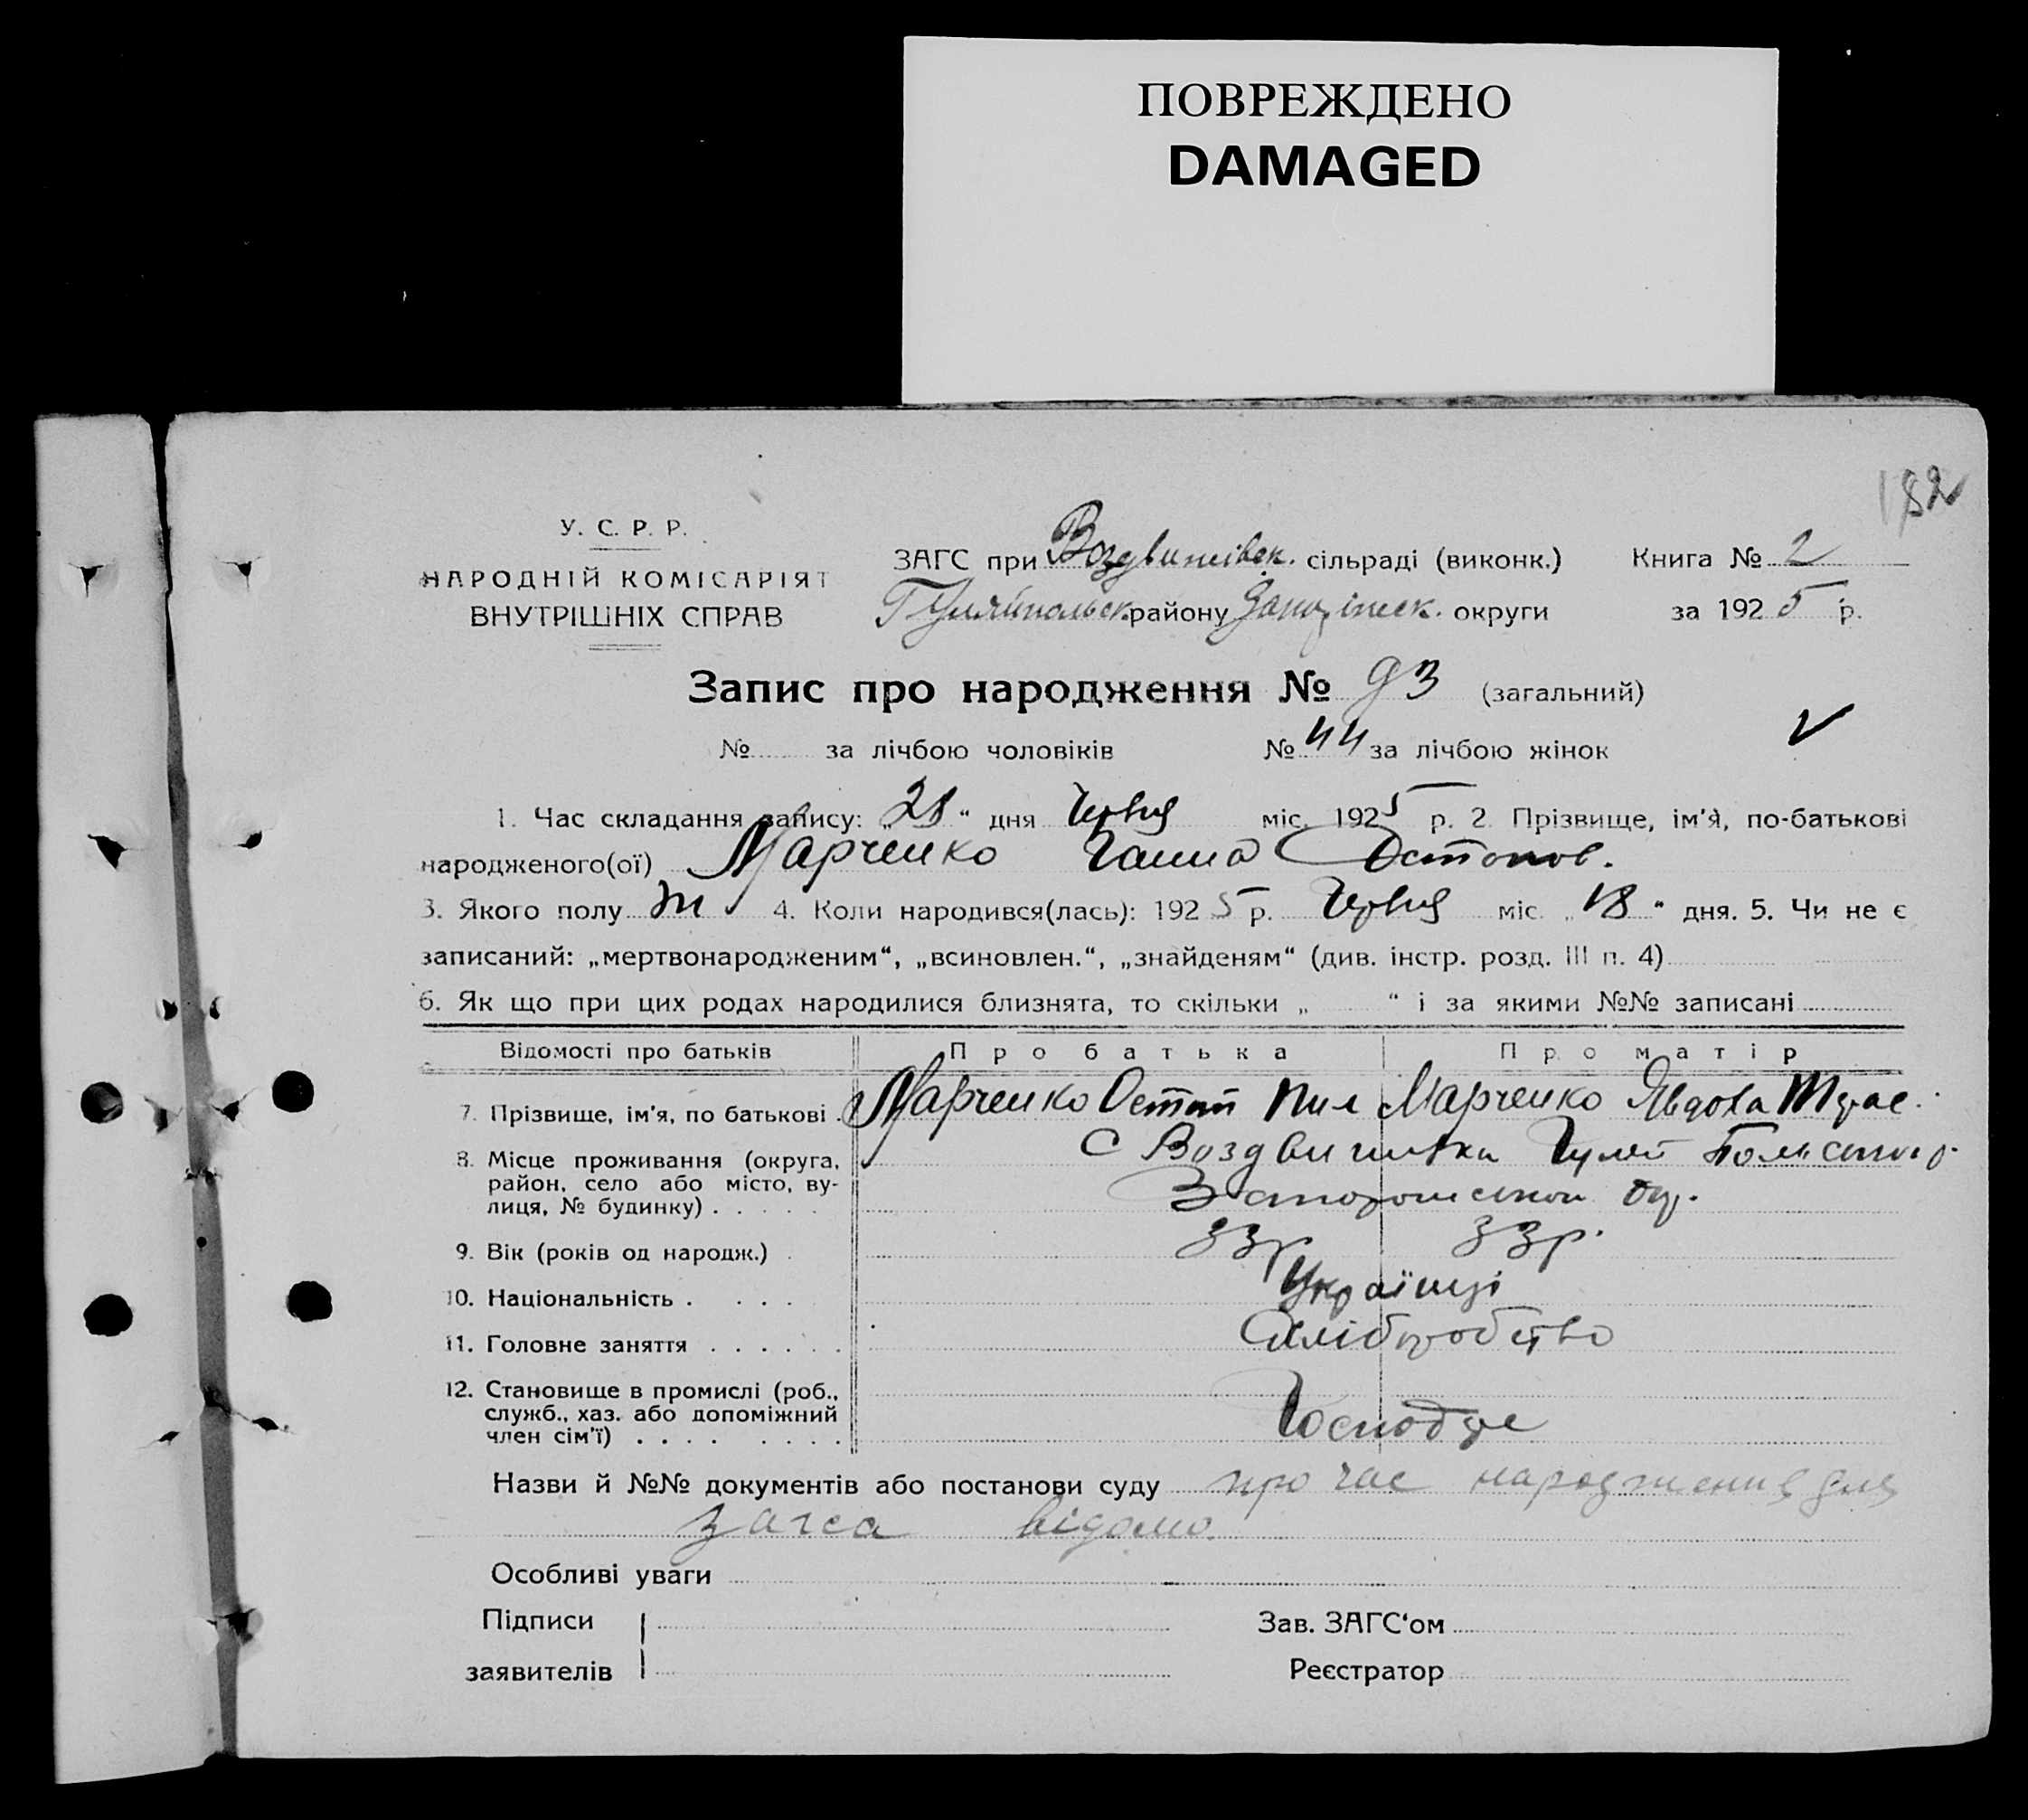 ПОВРЕЖДЕНО
DAMAGED
182
У. С. Р. Р.
НАРОДНІЙ КОМІСАРІЯТ
ВНУТРІШНІХ СПРАВ
ЗАГС при Воздвижівск. сільраді (виконк.) Книга № 2
Гуляйпольск. району Запоріжск. округи за 1925 р.
Запис про народження № 93 (загальний)
№ за лічбою чоловіків № 44 за лічбою жінок
1. Час складання запису: „28“ дня Червня міс. 1925 р. 2. Прізвище, ім’я, по-батькові
народженого(ої) Марченко Ганна Остапов.
3. Якого полу Ж 4. Коли народився(лась): 1925 р. Червня міс. „18“ дня. 5. Чи не є
записаний: „мертвонародженим“, „всиновлен.“, „знайденям“ (див. інстр. розд. III п. 4)
6. Як що при цих родах народилися близнята, то скільки „ “ і за якими №№ записані
Відомості про батьків Про батька Про матір
7. Прізвище, ім’я, по батькові . Марченко Остап Пил Марченко Явдоха Тарас.
8. Місце проживання (округа, С Воздвижівка Гуляй
район, село або місто, ву-
лиця, № будинку) . . . . . Запорожської окр.
9. Вік (років од народж.) . 33р 33р.
10. Національність . . . . Українці
11. Головне заняття . . . . . . Хліборобство
12. Становище в промислі (роб.,
служб., хаз. або допоміжний
член сім’ї) . . . . . . . . Господар
Назви й №№ документів або постанови суду про час народження для
загса відомо.
Особливі уваги
Підписи Зав. ЗАГС‘ом
заявителів Реєстратор